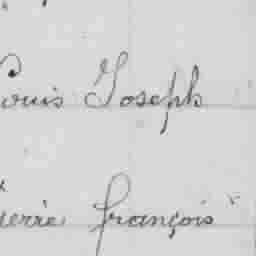 Louis Joseph
Pierre françois